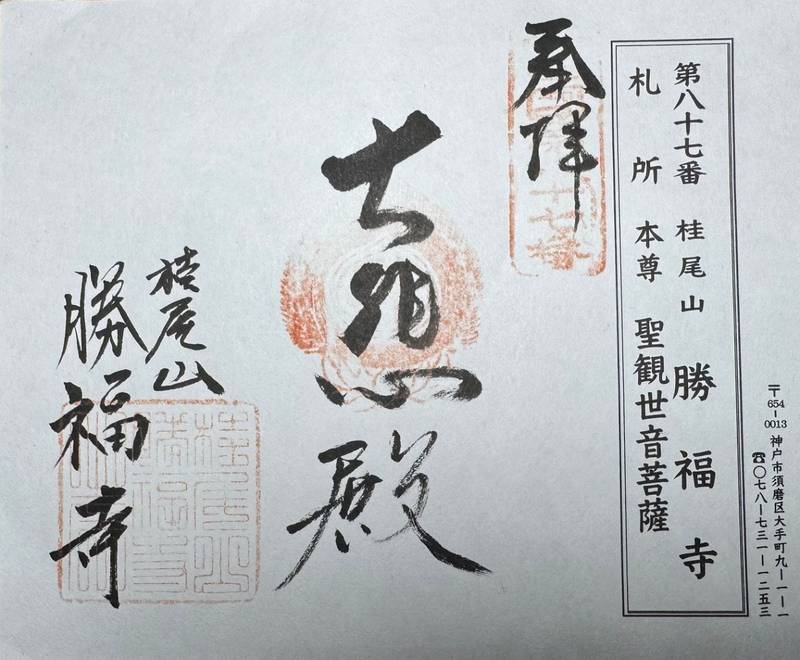 〒654-0013 神戸市須磨区大手町九ー一ー一
☎〇七八ー七三一ー一二五三
第八十七番 桂尾山 勝福寺
札所 本尊 聖観世音菩薩
奉拝
大悲殿
桂尾山
勝福寺